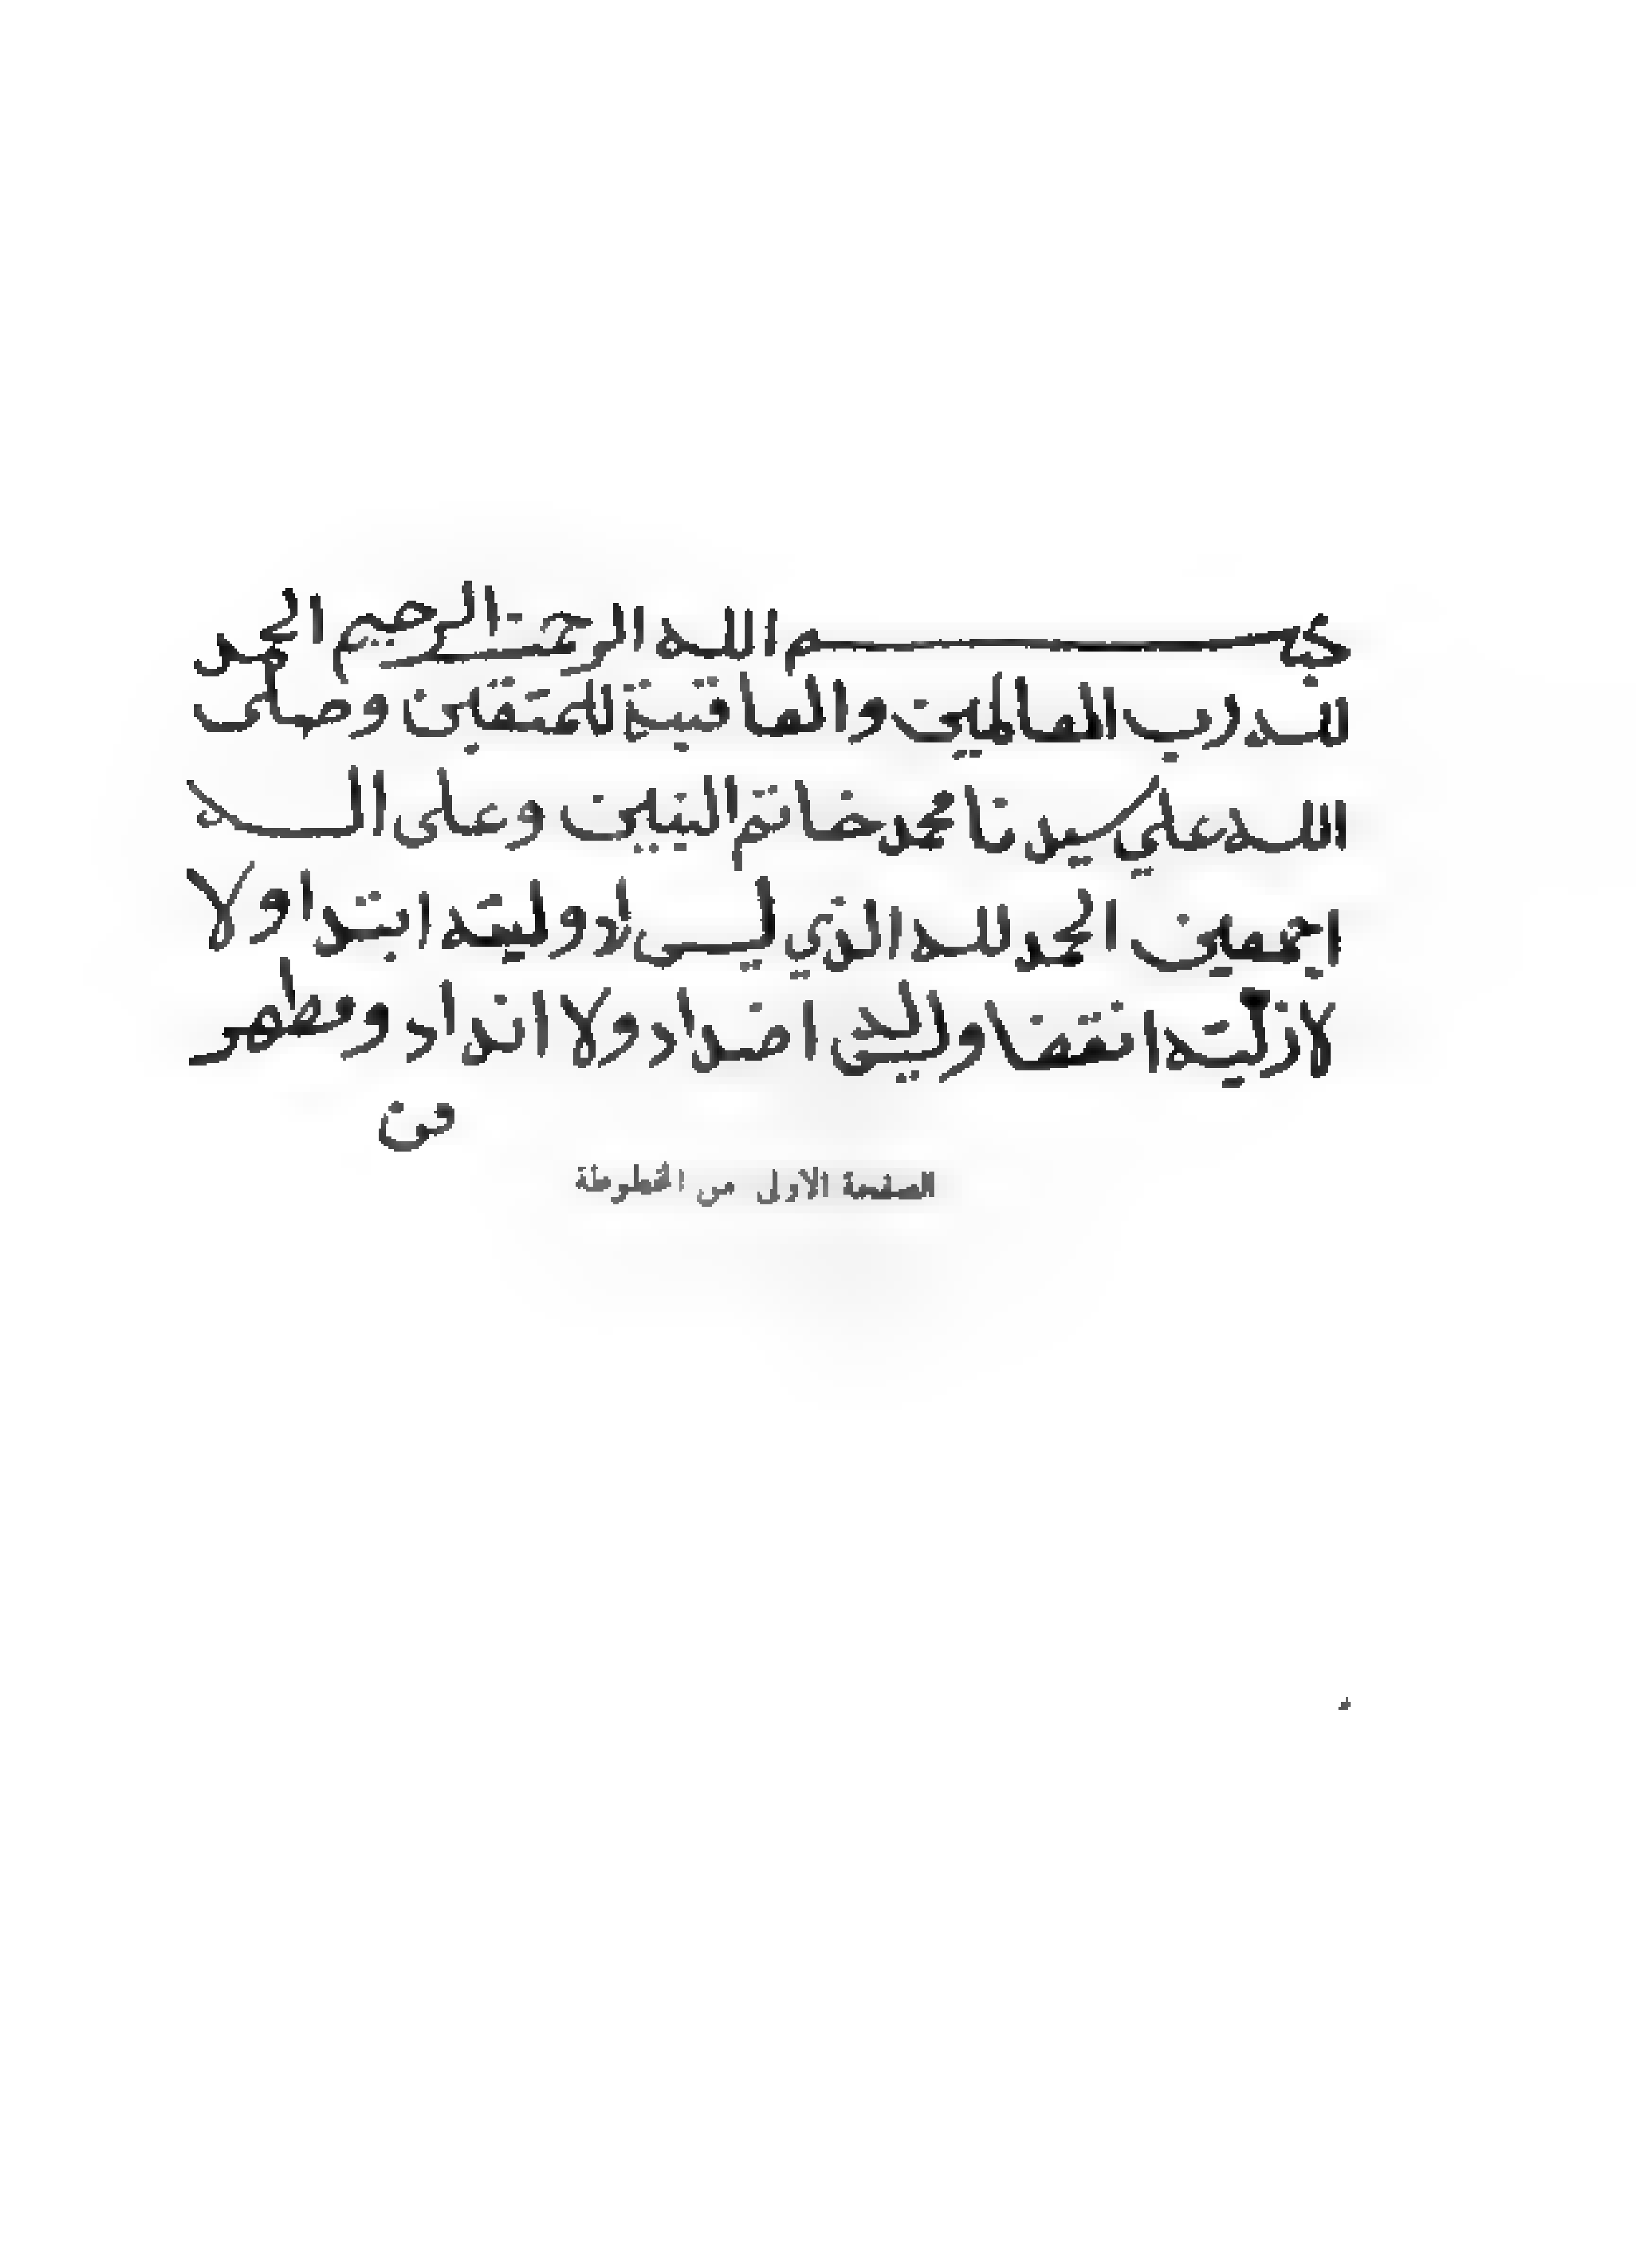 بسم الله الرحمن الرحيم الحمد
لله رب العالمين والعاقبة للمتقين وصلى
الله علي سيدنا محمد خاتم النبيين وعلى اله
اجمعين الحمد لله الذي ليس لاوليته ابتدا ولا
لازليته انقضا وليس له اضداد ولا انداد ومظهر
من
الصفحة الاولى من المخطوطة